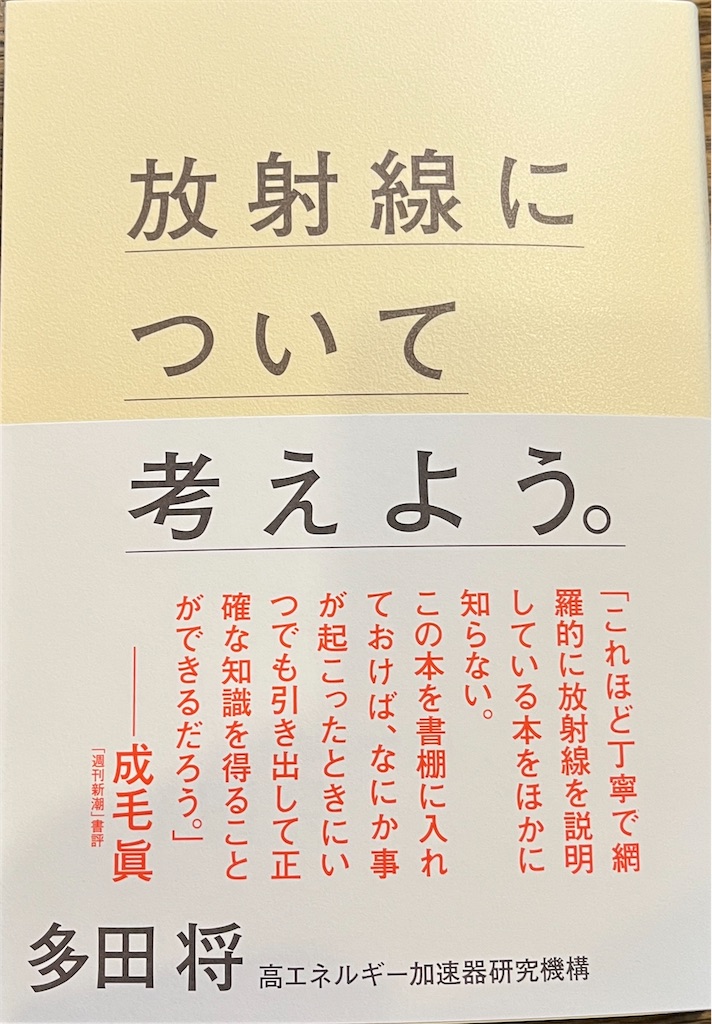 放射線に
ついて
考えよう。
「これほど丁寧で網
羅的に放射線を説明
している本をほかに
知らない。
この本を書棚に入れ
ておけば、なにか事
が起こったときにい
つでも引き出して正
確な知識を得ること
ができるだろう。」
──成毛 眞
「週刊新潮」書評
多田 将 高エネルギー加速器研究機構